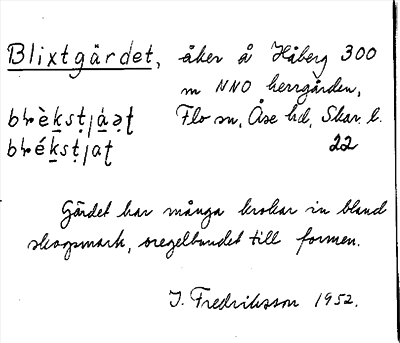 Blixtgärdet, åker å Håberg 300
m NNO herrgården,
Flo sn, Åse hd, Skar. l.
22
Gärdet har många krokar in bland
skogsmark, oregelbundet till formen.
J. Fredriksson 1952.